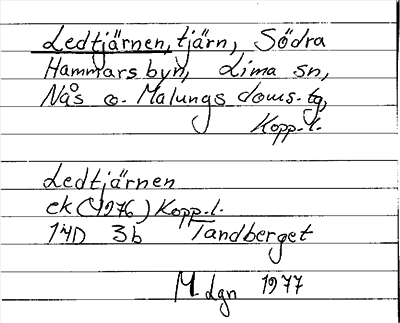 Ledtjärnen, tjärn, Södra
Hammars byn, Lima sn,
Nås o. Malungs doms. tg,
Kopp. l.
Ledtjärnen
ek (1976) Kopp. l.
14D 3b Tandberget
M. Lgn 1977